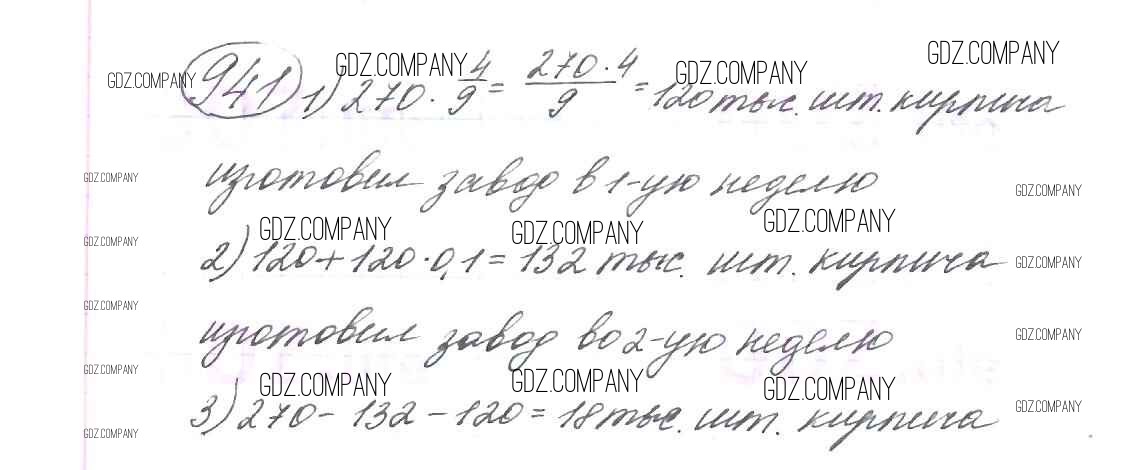 941 1) 270 · 4/9 = 270 · 4/9 = 120 тыс. шт. кирпича
изготовил завод в 1-ую неделю
2) 120 + 120 · 0,1 = 132 тыс. шт. кирпича
изготовил завод во 2-ую неделю
3) 270 - 132 - 120 = 18 тыс. шт. кирпича
GDZ.COMPANY GDZ.COMPANY GDZ.COMPANY GDZ.COMPANY
GDZ.COMPANY GDZ.COMPANY
GDZ.COMPANY GDZ.COMPANY GDZ.COMPANY
GDZ.COMPANY GDZ.COMPANY
GDZ.COMPANY GDZ.COMPANY
GDZ.COMPANY GDZ.COMPANY
GDZ.COMPANY GDZ.COMPANY GDZ.COMPANY
GDZ.COMPANY GDZ.COMPANY